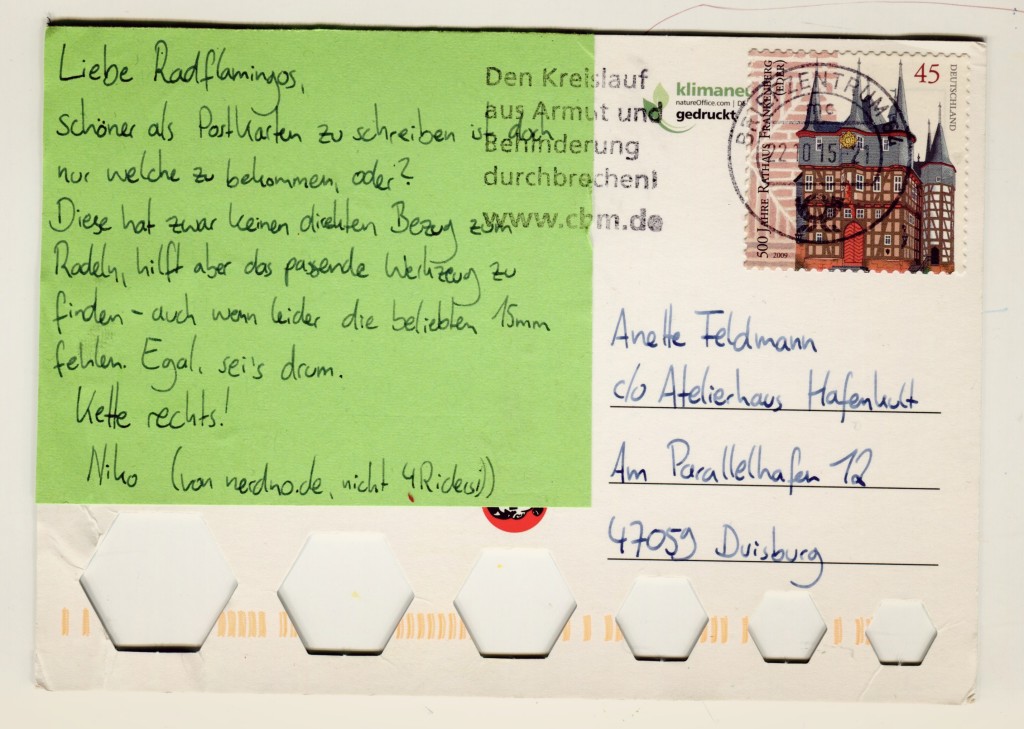 Liebe Radflamingos,
schöner als Postkarten zu schreiben ist doch
nur welche zu bekommen, oder?
Diese hat zwar keinen direkten Bezug zum
Radeln, hilft aber das passende Werkzeug zu
finden - auch wenn leider die beliebten 15mm
fehlen. Egal, sei's drum.
Kette rechts!
Niko (von nerdno.de, nicht 4Rider(s))
Den Kreislauf
aus Armut und
Behinderung
durchbrechen!
www.cbm.de
klimaneu
natureOffice.com | DE
gedruckt
500 JAHRE RATHAUS FRANKENBERG
(EDER)
2009
45
DEUTSCHLAND
BRIEFZENTRUM
22.10.15-21
Anette Feldmann
c/o Atelierhaus Hafenkult
Am Parallelhafen 12
47059 Duisburg